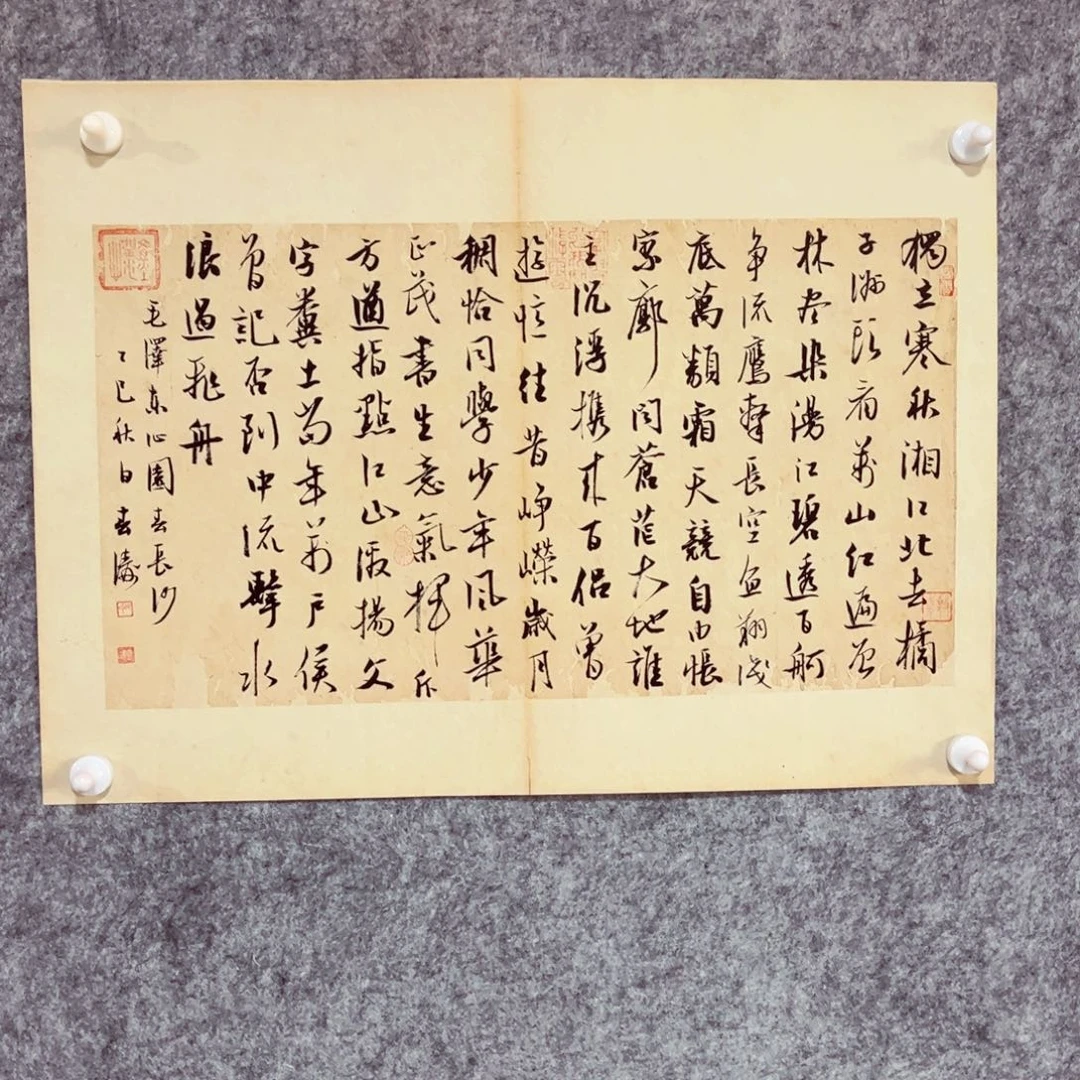 獨立寒秋湘江北去橘
子洲頭看萬山紅遍層
林尽染漫江碧透百舸
争流鷹擊長空魚翔淺
底萬類霜天競自由悵
寥廓問蒼茫大地誰
主沉浮攜來百侣曾
遊憶往昔崢嶸歲月
稠恰同學少年風華
正茂書生意氣揮斥
方遒指點江山激揚文
字糞土當年萬户侯
曾記否到中流擊水
浪遏飛舟
毛澤東沁園春長沙
乙巳秋日春濤